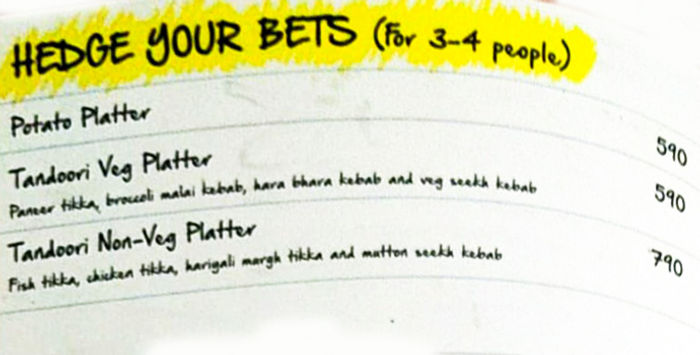 HEDGE YOUR BETS (For 3-4 people)
Potato Platter 590
Tandoori Veg Platter 590
Paneer tikka, broccoli malai kebab, hara bhara kebab and veg seekh kebab
Tandoori Non-Veg Platter 790
Fish tikka, chicken tikka, hariyali murgh tikka and mutton seekh kebab